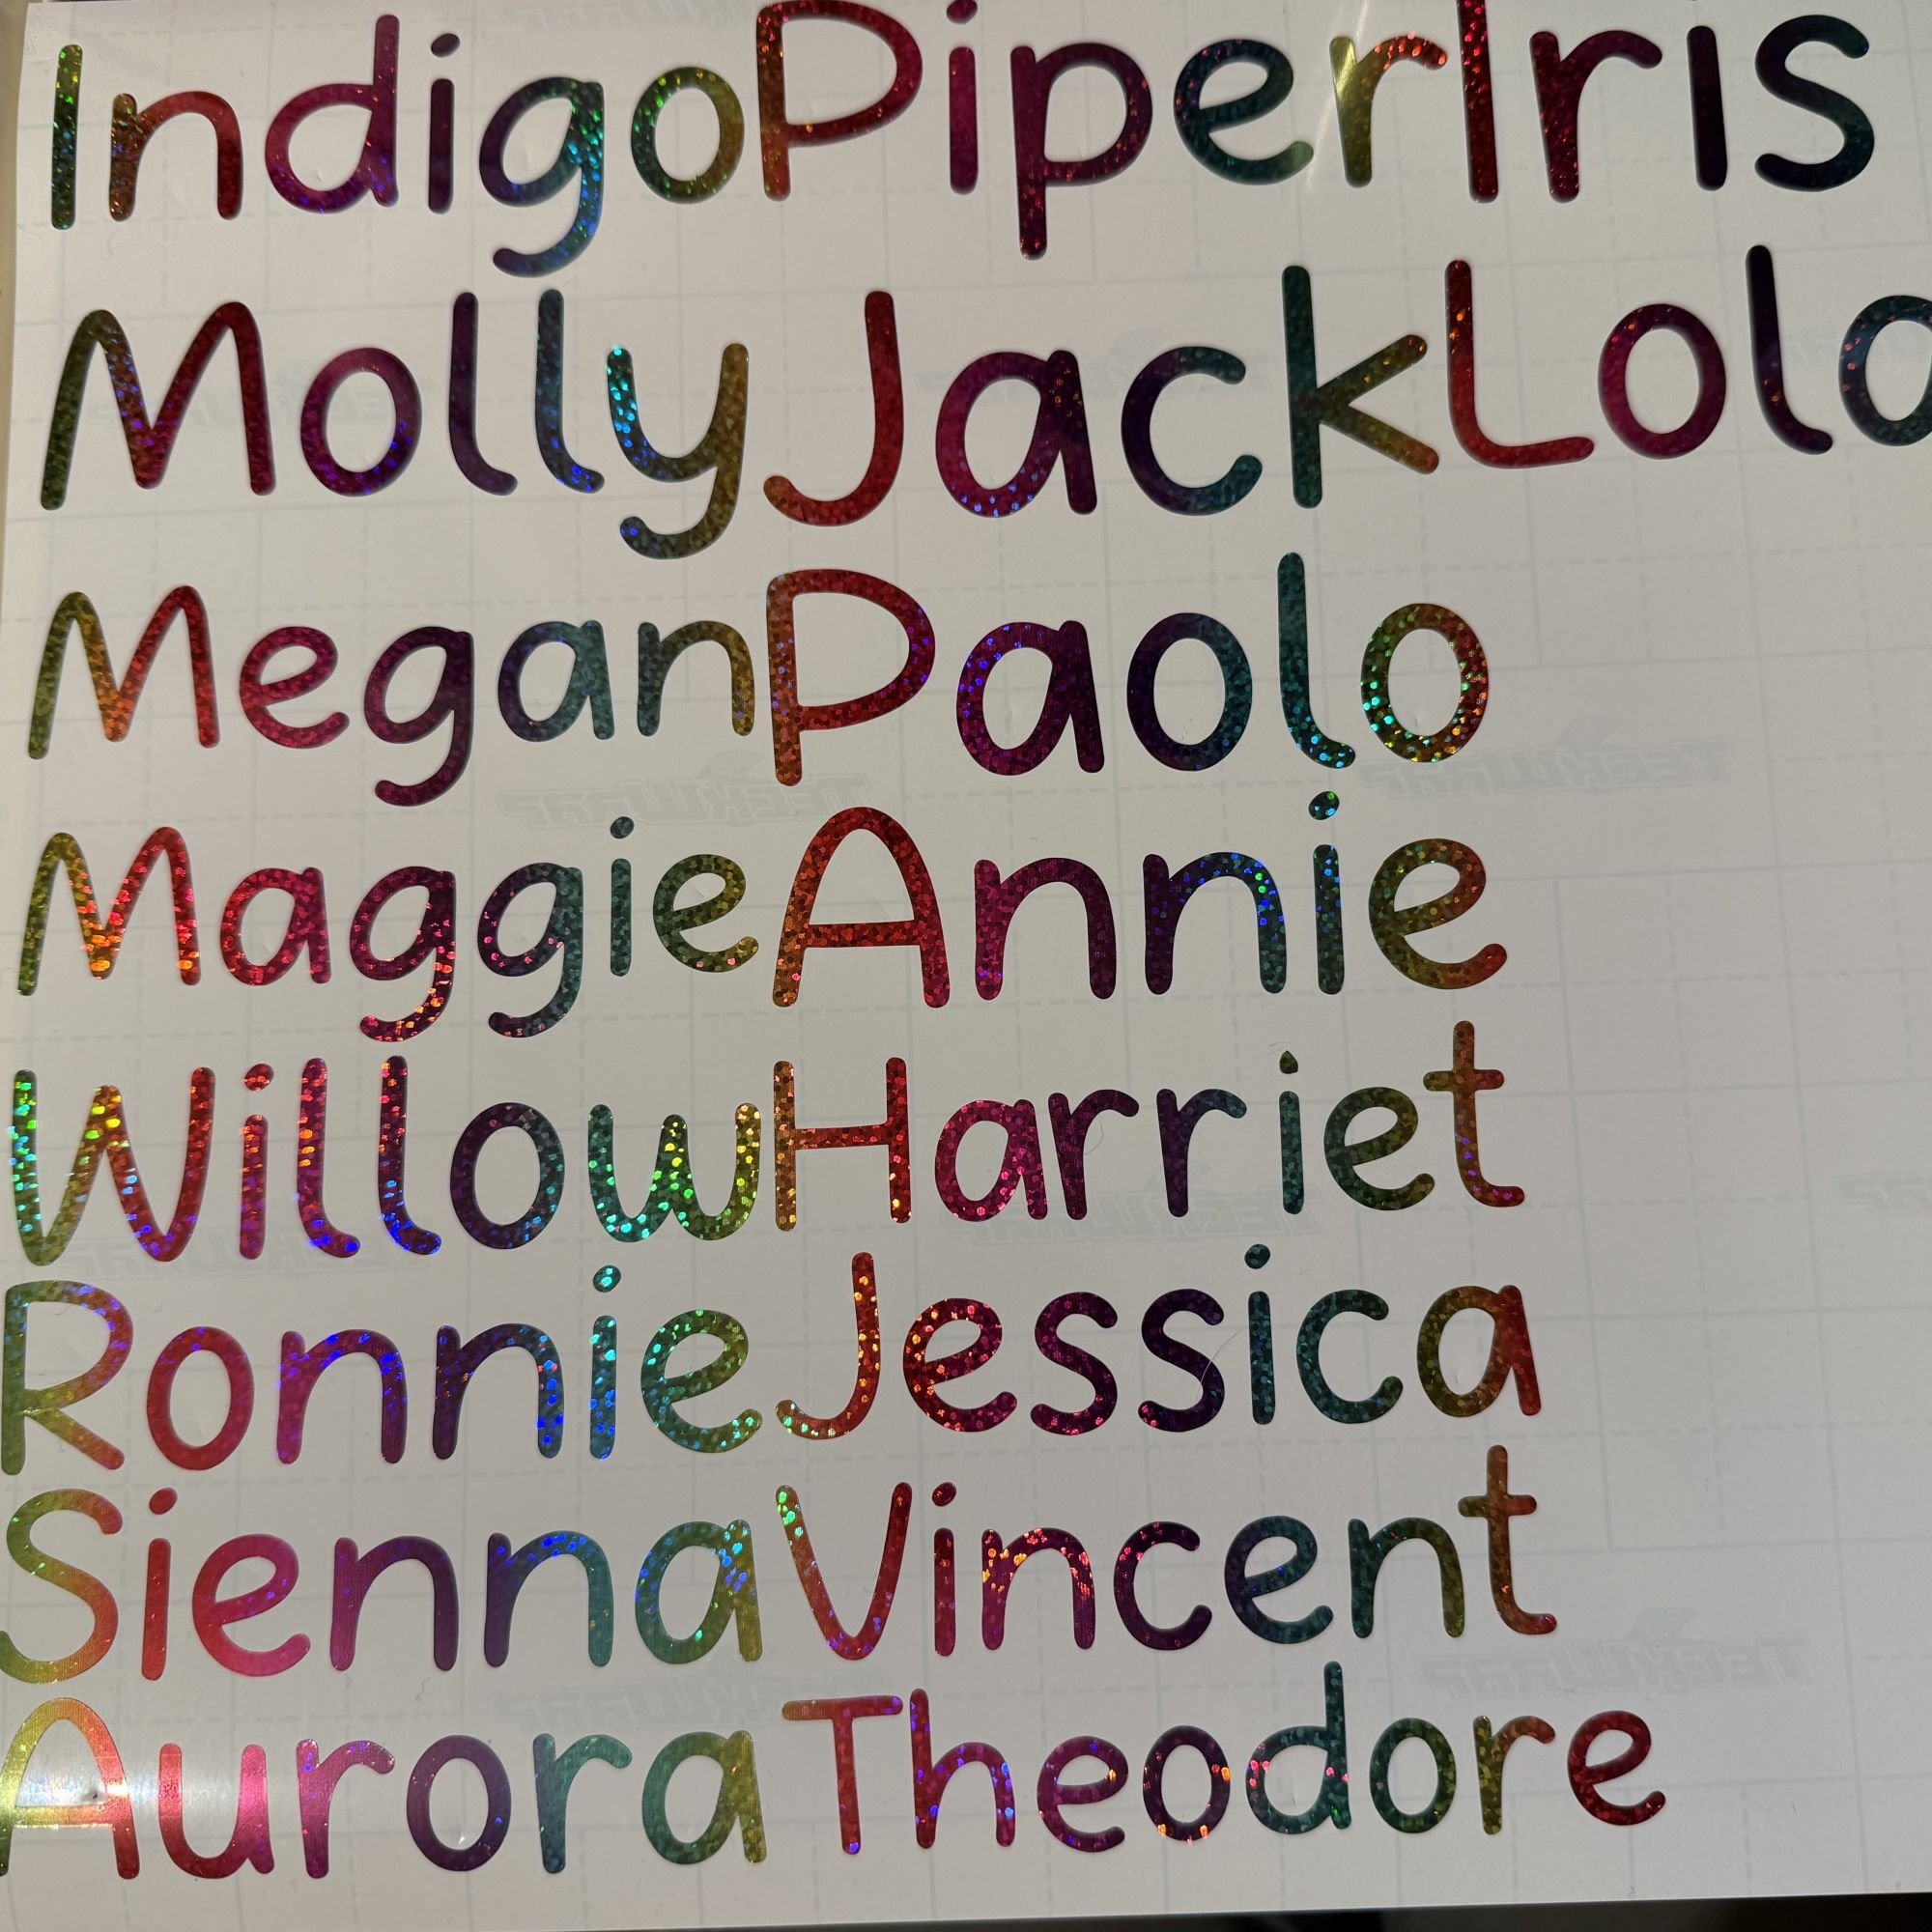 IndigoPiperIris
MollyJackLolo
MeganPaolo
TECKWRAP
TECKWRAP
MaggieAnnie
WillowHarriet
RonnieJessica
SiennaVincent
TECKWRAP
AuroraTheodore